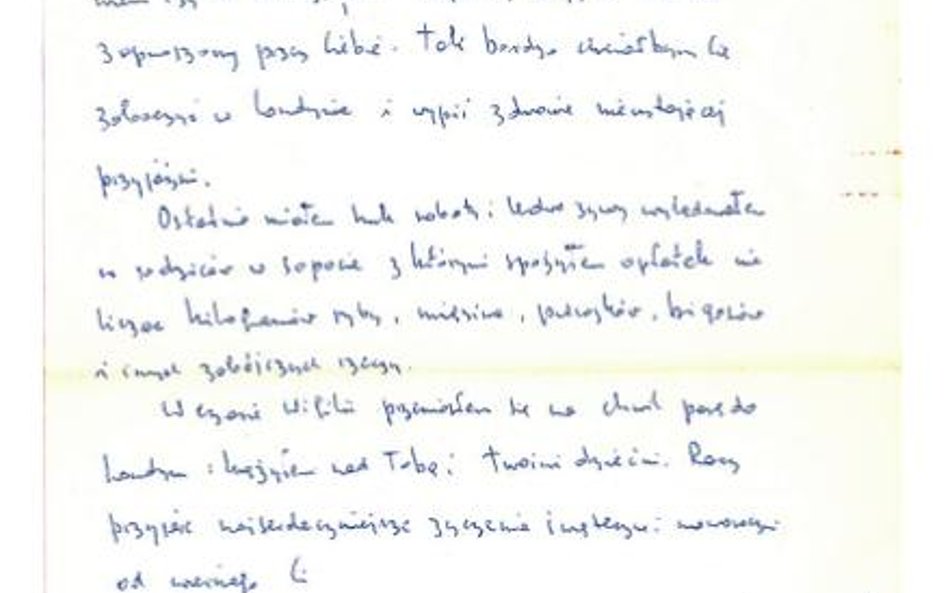 zaproszony przez Ciebie. Tak bardzo chciałbym Cię
zobaczyć w Londynie i wypić zdrowie nieustającej
przyjaźni.
Ostatnio miałem huk roboty i ledwo żywy wylądowałem
u rodziców w Sopocie z którymi spożyłem opłatek nie
licząc kilogramów ryby, mięsiwa, pierożków, bigosów
i innych zabójczych rzeczy.
W czasie Wilii przeniosłem się na chwil parę do
Londynu i krążyłem nad Tobą i Twoimi dziećmi. Racz
przyjąć najserdeczniejsze życzenia świąteczne i noworoczne
od wiernego Ci